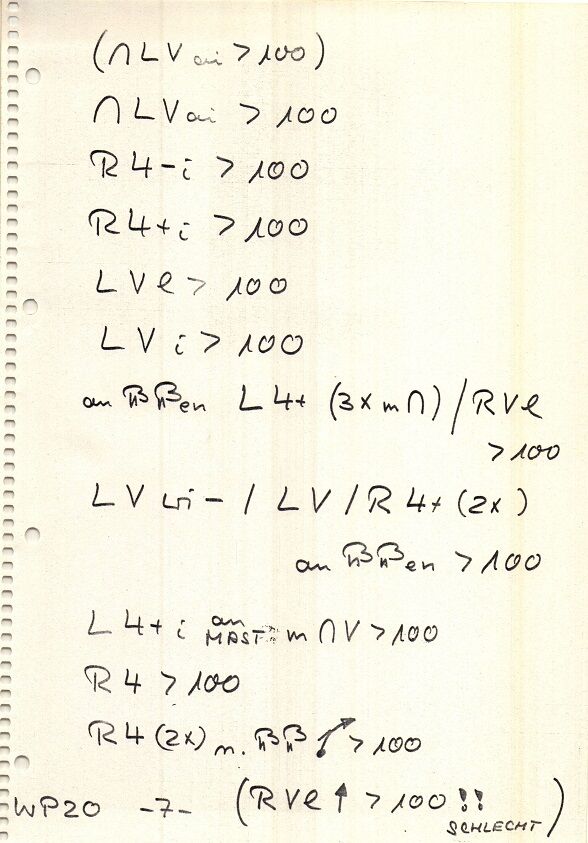 (∩LVai >100)
∩LVai >100
R4-i >100
R4+i >100
LVl >100
LVi >100
an BBen L4+ (3x m∩) / RVl
>100
LV - / LV / R4+ (2x)
an BBen >100
L4+i an MAST m∩V >100
R4 >100
R4 (2x) n. BB >100
WP20 -7- (RVl ↑ >100 !!
SCHLECHT)